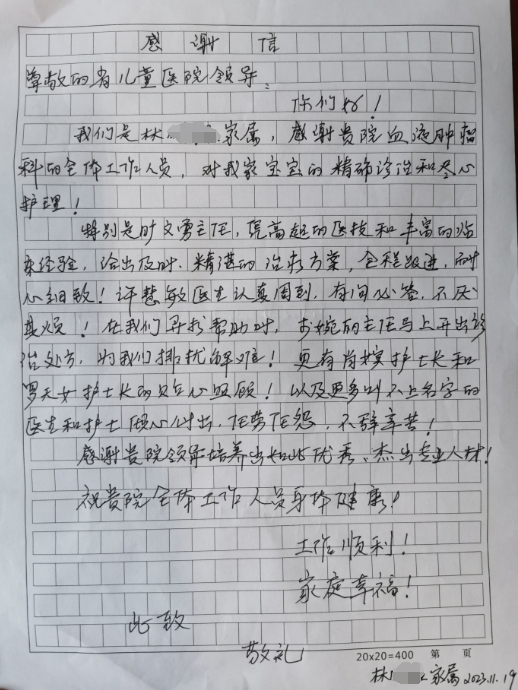 感谢信
尊敬的省儿童医院领导：
你们好！
我们是林 家属，感谢贵院血液肿瘤
科的全体工作人员，对我家宝宝的精确诊治和尽心
护理！
特别是时文勇主任，凭高超的医技和丰富的临
床经验，给出及时、精湛的治疗方案，全程跟进，耐
心细致！许慧敏医生认真周到，有问必答，不厌
其烦！在我们寻求帮助时，婉丽主任马上开出诊
治处方，为我们排忧解难！更有肖嫔护士长和
罗天女护士长的贴心照顾！以及更多叫不上名字的
医生和护士倾心付出，任劳任怨，不辞辛苦！
感谢贵院领导培养出如此优秀、杰出专业人材！
祝贵院全体工作人员身体健康！
工作顺利！
家庭幸福！
此致
敬礼
20x20=400 第 页
林 家属 2023.11.19